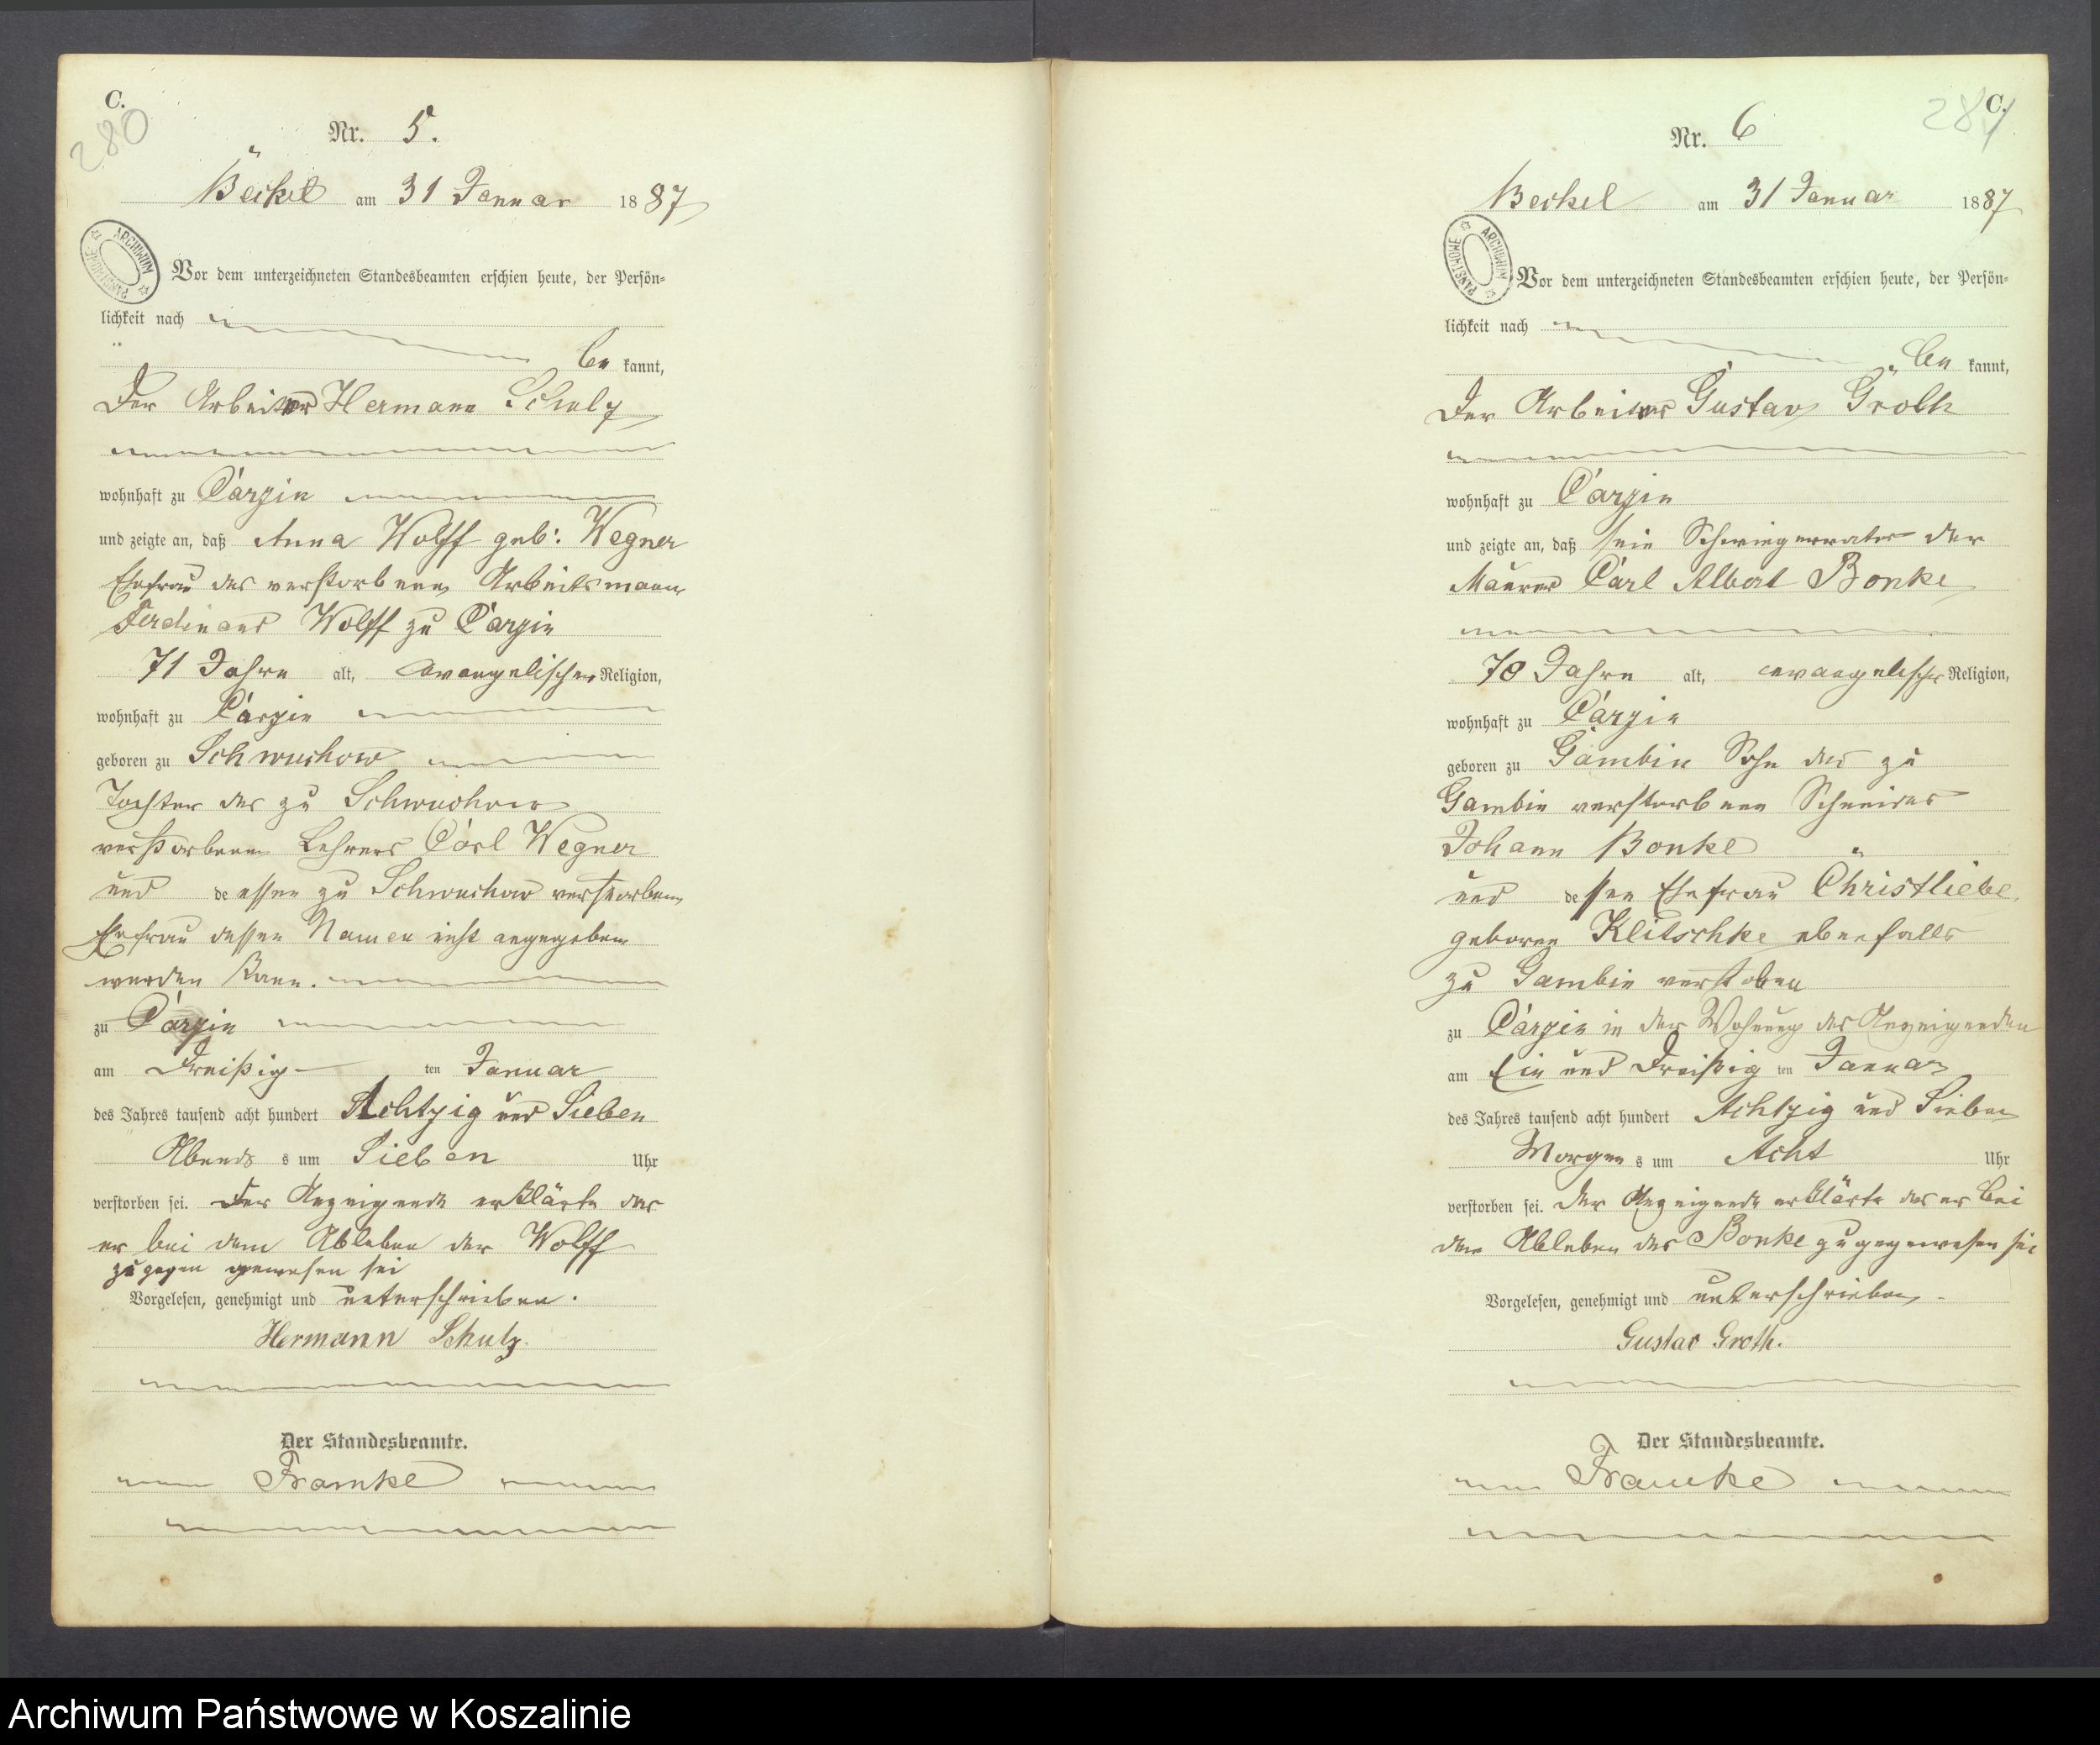 C.
280
Nr. 5.
Beckel am 31 Januar 1887
ARCHIWUM PAŃSTWOWE
Vor dem unterzeichneten Standesbeamten erschien heute, der Persön-
lichkeit nach
be kannt,
Der Arbeiter Hermann Schulz
wohnhaft zu Carzin
und zeigte an, daß Anna Wolff geb: Wegner
Ehefrau des verstorbenen Arbeitsmann
Ferdinand Wolff zu Carzin
71 Jahre alt, evangelischer Religion,
wohnhaft zu Carzin
geboren zu Schwuchow
Tochter des zu Schwuchow
verstorbenen Lehrers Carl Wegner
und de essen zu Schwuchow verstorbenen
Ehefrau dessen Namen nicht angegeben
werden kann.
zu Carzin
am Dreißig ten Januar
des Jahres tausend acht hundert Achtzig und Sieben
Abends s um Sieben Uhr
verstorben sei. Der Anzeigende erklärte das
er bei dem Ableben der Wolff
zugegen gewesen sei
Vorgelesen, genehmigt und unterschrieben.
Hermann Schulz.
Der Standesbeamte.
Framke
C.
281
Nr. 6
Beckel am 31 Januar 1887
ARCHIWUM PAŃSTWOWE
Vor dem unterzeichneten Standesbeamten erschien heute, der Persön-
lichkeit nach
be kannt,
Der Arbeiter Gustav Groth
wohnhaft zu Carzin
und zeigte an, daß sein Schwiegervater der
Maurer Carl Albert Bonke
70 Jahre alt, evangelischer Religion,
wohnhaft zu Carzin
geboren zu Gambin Sohn des zu
Gambin verstorbenen Schneider
Johann Bonke
und dessen Ehefrau Christliebe
geboren Klitschke ebenfalls
zu Gambin verstoben
zu Carzin in der Wohnung des Anzeigenden
am Ein und Dreißig ten Januar
des Jahres tausend acht hundert Achtzig und Sieben
Morgen s um Acht Uhr
verstorben sei. Der Anzeigende erklärte das er bei
dem Ableben des Bonke zugegewesen sei
Vorgelesen, genehmigt und unterschrieben
Gustav Groth.
Der Standesbeamte.
Framke
Archiwum Państwowe w Koszalinie